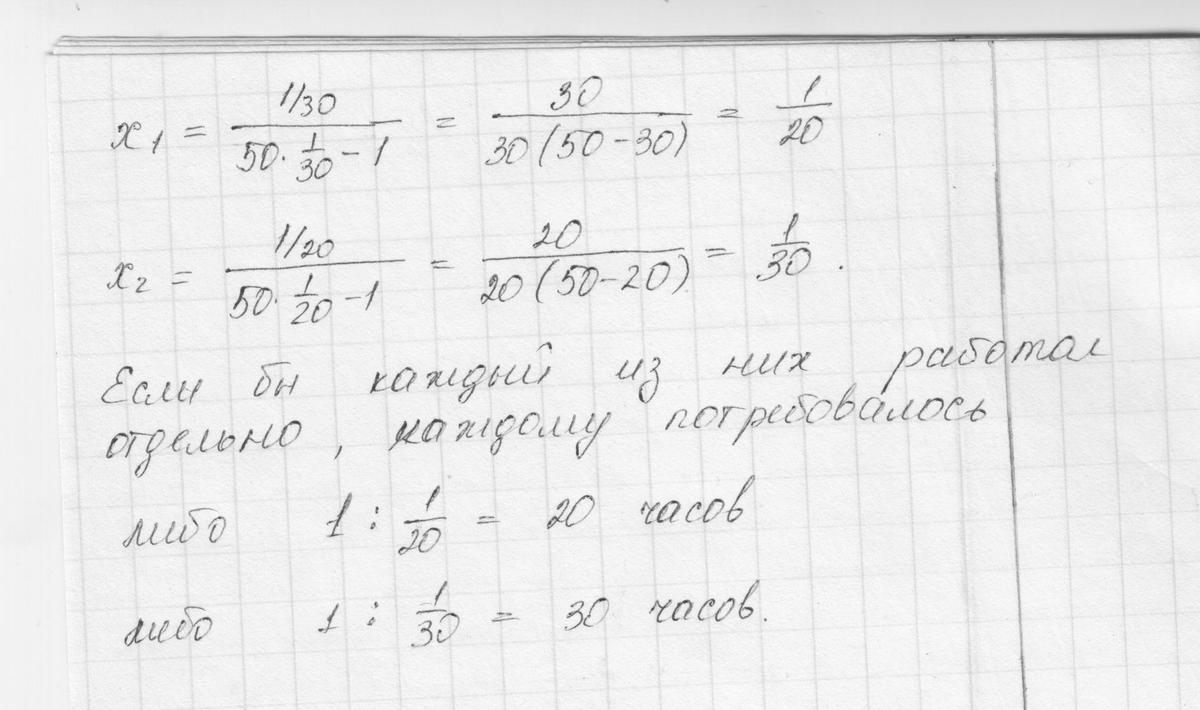 x₁ = (1/30)/(50·1/30 − 1) = 30/(30(50−30)) = 1/20
x₂ = (1/20)/(50·1/20 − 1) = 20/(20(50−20)) = 1/30.
Если бы каждый из них работал
отдельно, каждому потребовалось
либо 1 : 1/20 = 20 часов
либо 1 : 1/30 = 30 часов.